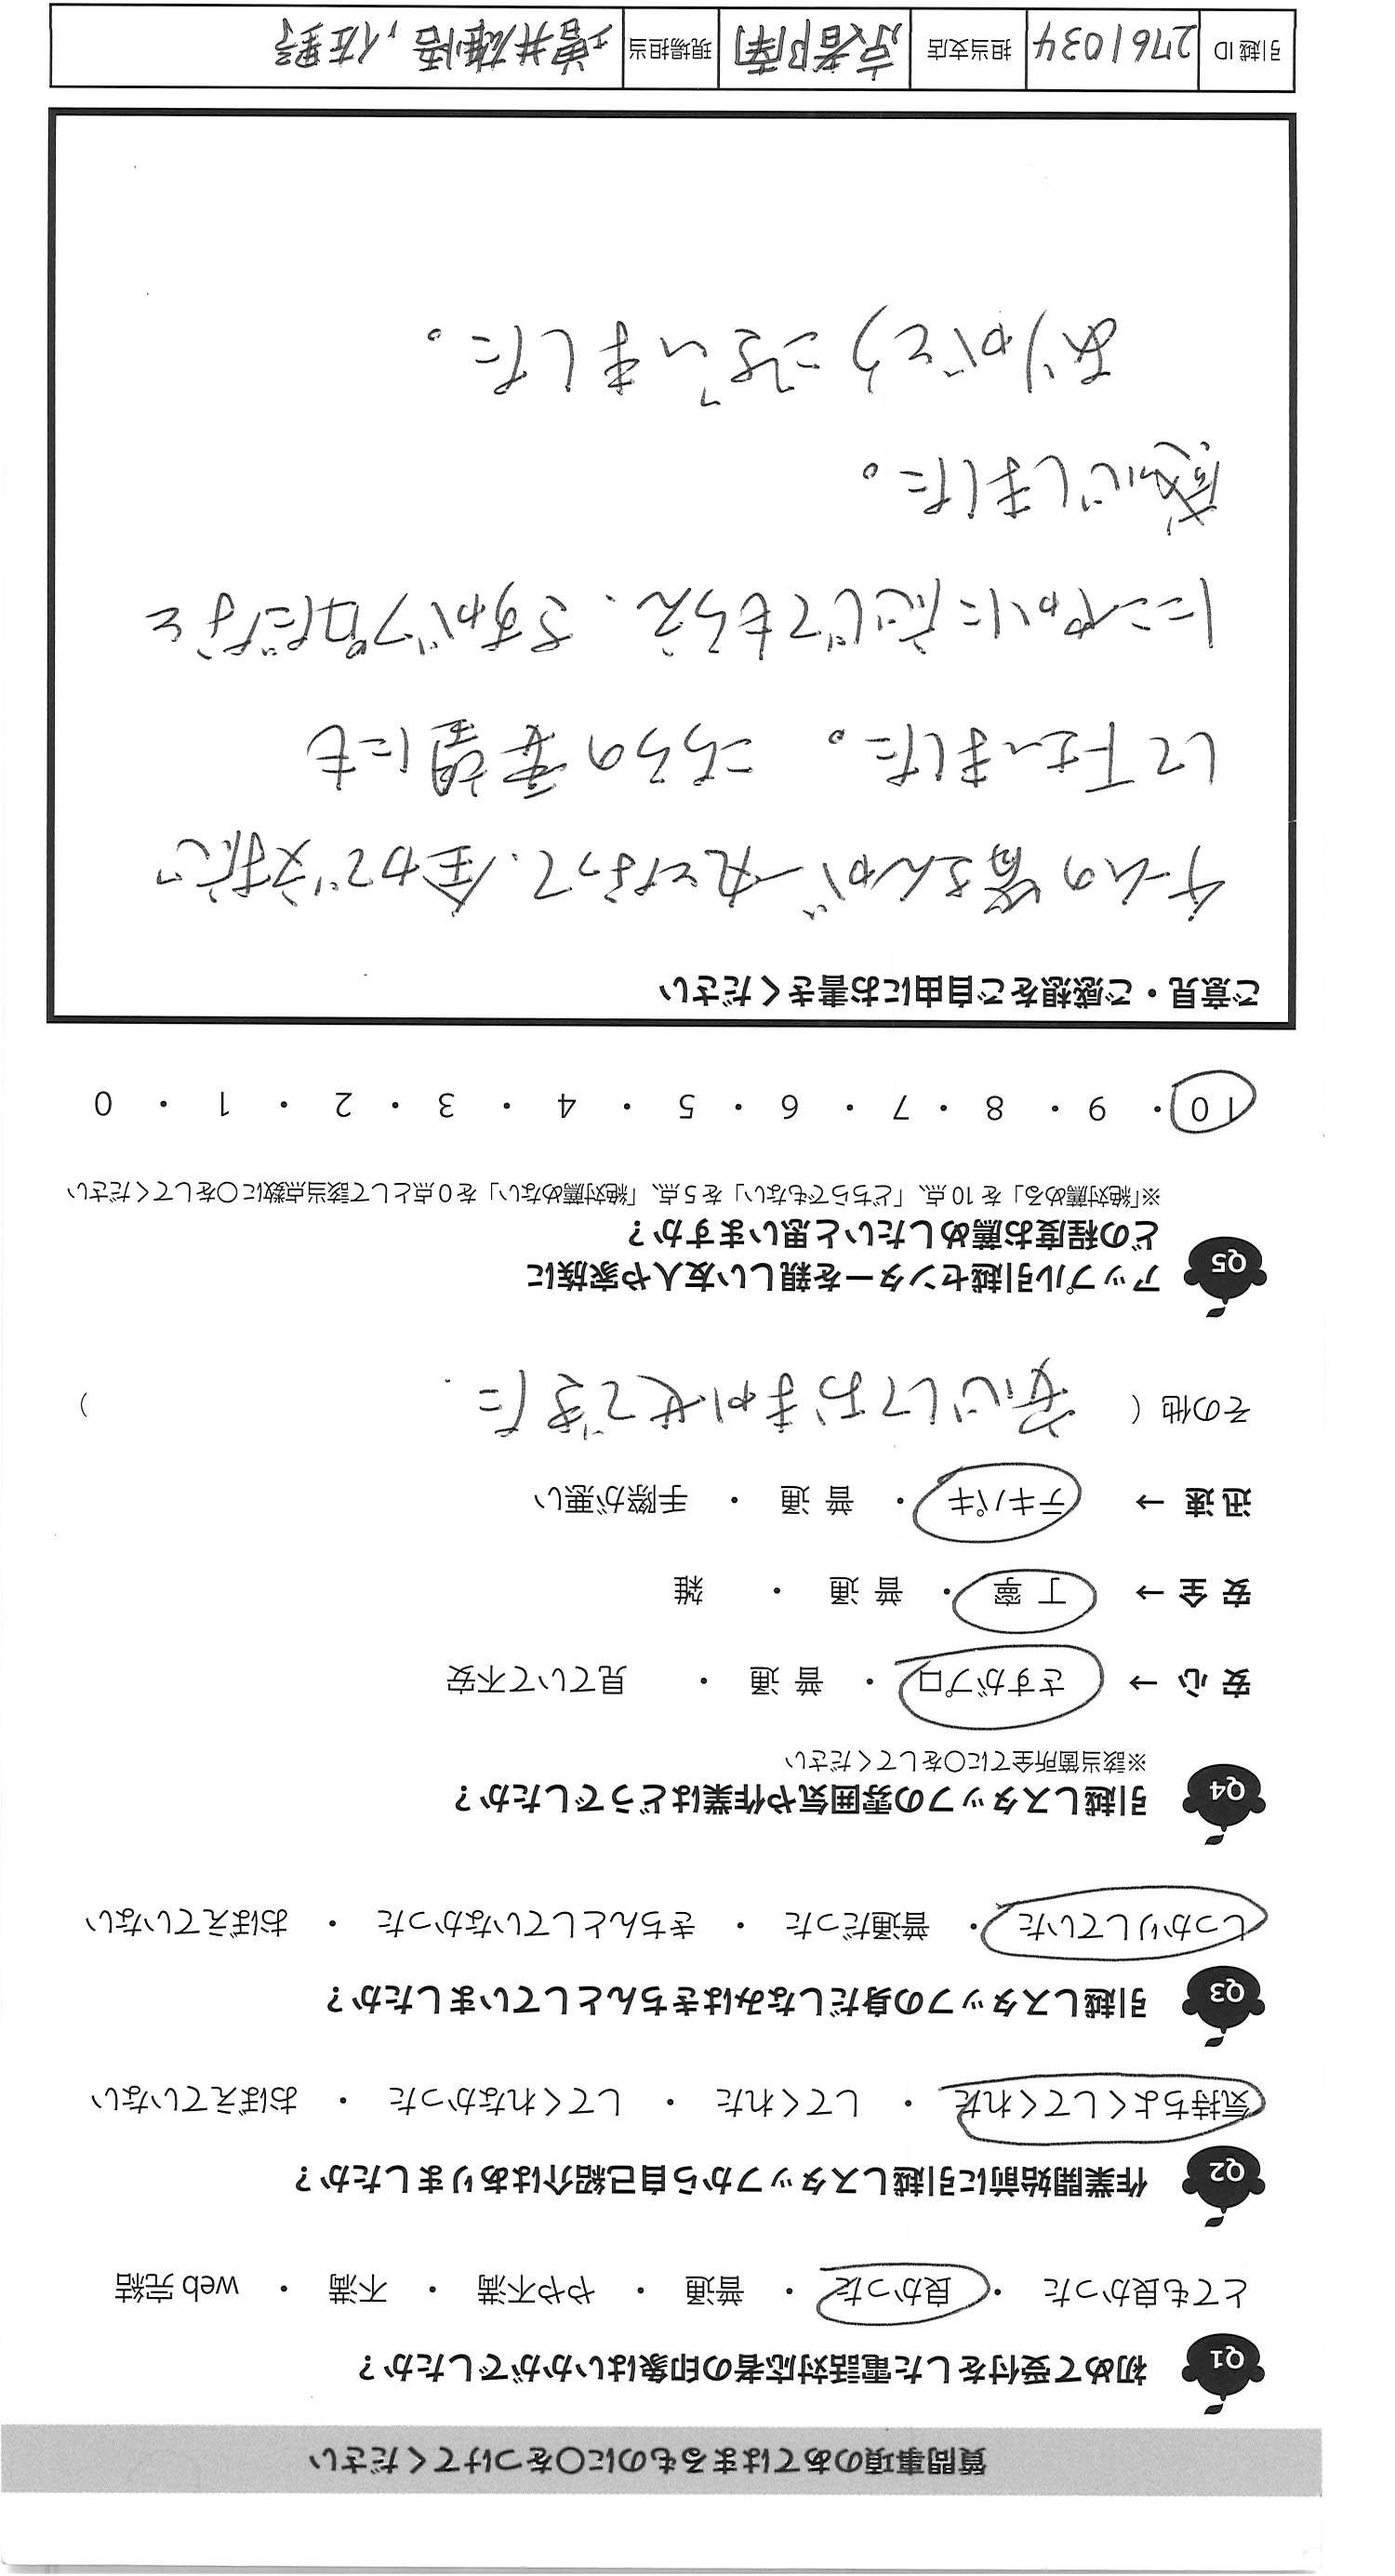 質問事項のあてはまるものに〇をつけてください
Q1 初めて受付をした電話対応者の印象はいかがでしたか？
とても良かった ・ 良かった ・ 普通 ・ やや不満 ・ 不満 ・ web 完結
Q2 作業開始前に引越しスタッフから自己紹介はありましたか？
気持ちよくしてくれた ・ してくれた ・ してくれなかった ・ おぼえていない
Q3 引越しスタッフの身だしなみはきちんとしていましたか？
しっかりしていた ・ 普通だった ・ きちんとしていなかった ・ おぼえていない
Q4 引越しスタッフの雰囲気や作業はどうでしたか？
※該当箇所全てに〇をしてください
安 心 → さすがプロ ・ 普 通 ・ 見ていて不安
安 全 → 丁 寧 ・ 普 通 ・ 雑
迅 速 → テキパキ ・ 普 通 ・ 手際が悪い
その他 （ 安心しておまかせできた. ）
Q5 アップル引越センターを親しい友人や家族に
どの程度お薦めしたいと思いますか？
※「絶対薦める」を 10 点、「どちらでもない」を 5 点、「絶対薦めない」を 0 点として該当点数に〇をしてください
10 ・ 9 ・ 8 ・ 7 ・ 6 ・ 5 ・ 4 ・ 3 ・ 2 ・ 1 ・ 0
ご意見・ご感想をご自由にお書きください
チームの皆さんが一丸となって、全力で対応
して下さいました。 こちらの要望にも
にこやかに応じてもらえ、さすがプロだなと
感心しました。
ありがとうございました。
引越 ID 2761034 担当支店 京都南 現場担当 増井雄悟, 佐野